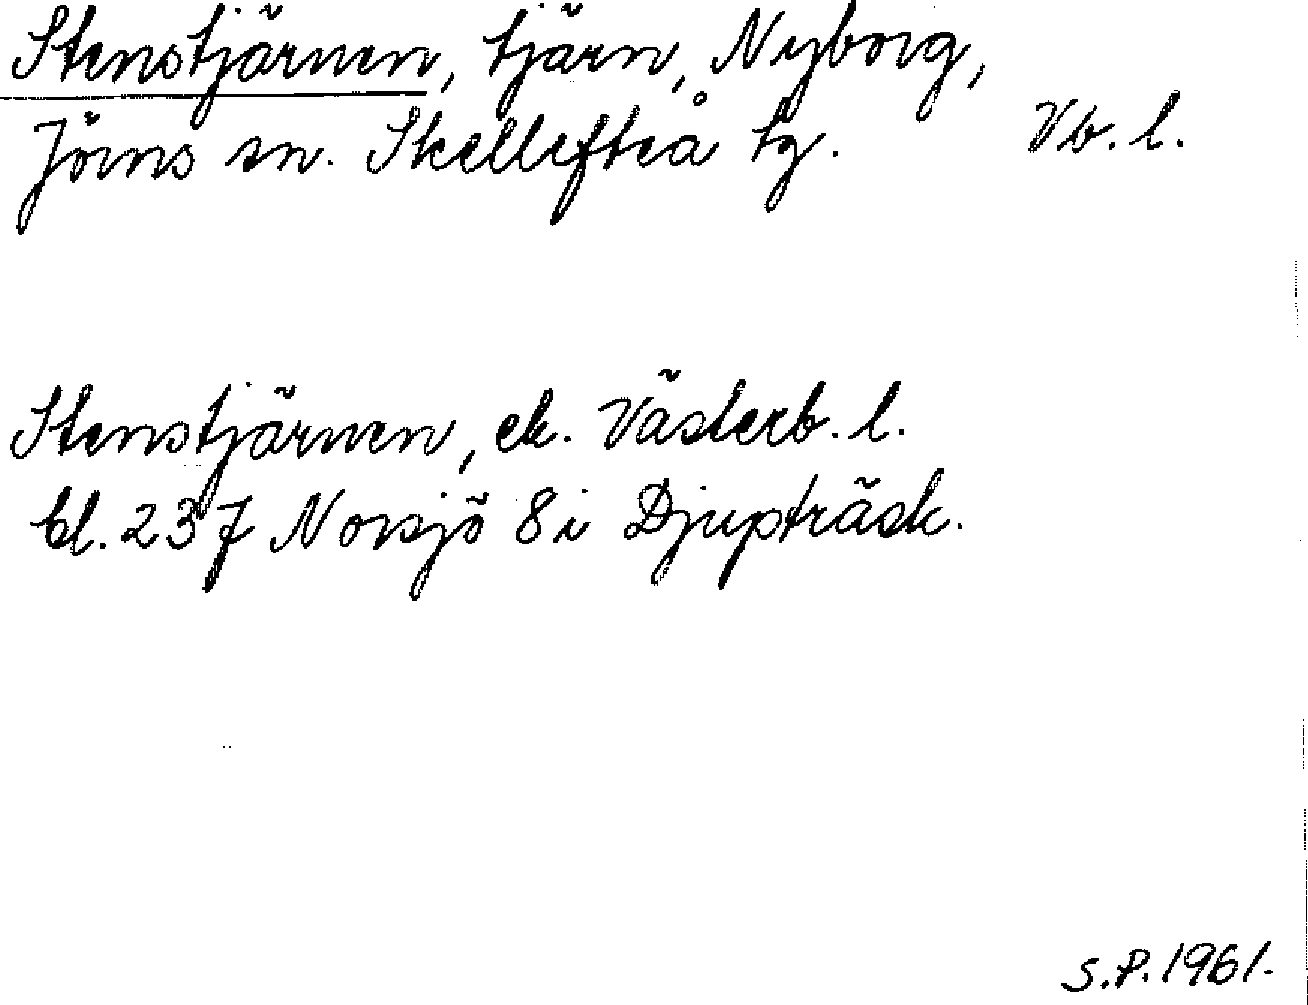 Stenstjärnen, tjärn, Nyborg,
Jörns sn. Skellefteå tg. Vb. l.
Stenstjärnen, ek. Västerb. l.
bl. 237 Norsjö 8i Djupträsk.
S.P. 1961.